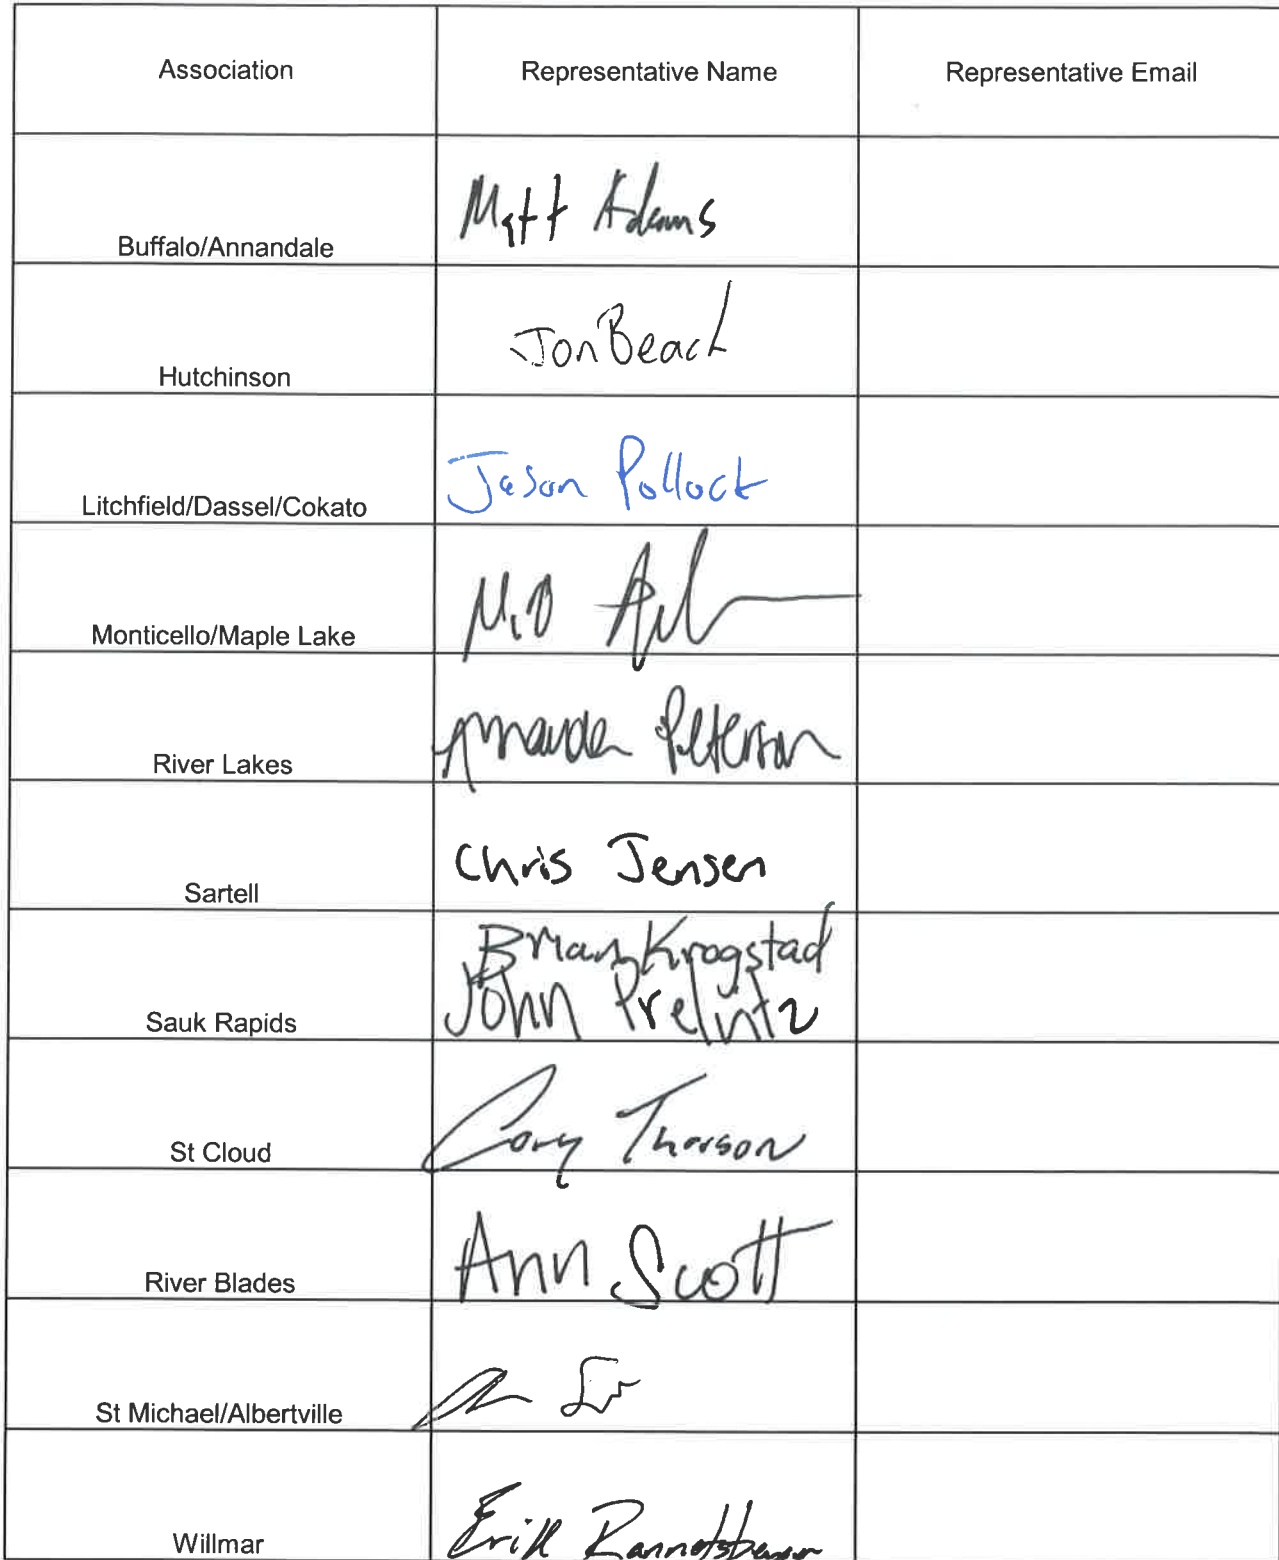 Association Representative Name Representative Email
Buffalo/Annandale Matt Adams
Hutchinson Jon Beach
Litchfield/Dassel/Cokato Jason Pollock
Monticello/Maple Lake
River Lakes Amanda Peterson
Sartell Chris Jensen
Brian Krogstad
Sauk Rapids John Prelvitz
St Cloud Cory Thorson
River Blades Ann Scott
St Michael/Albertville
Willmar Erik